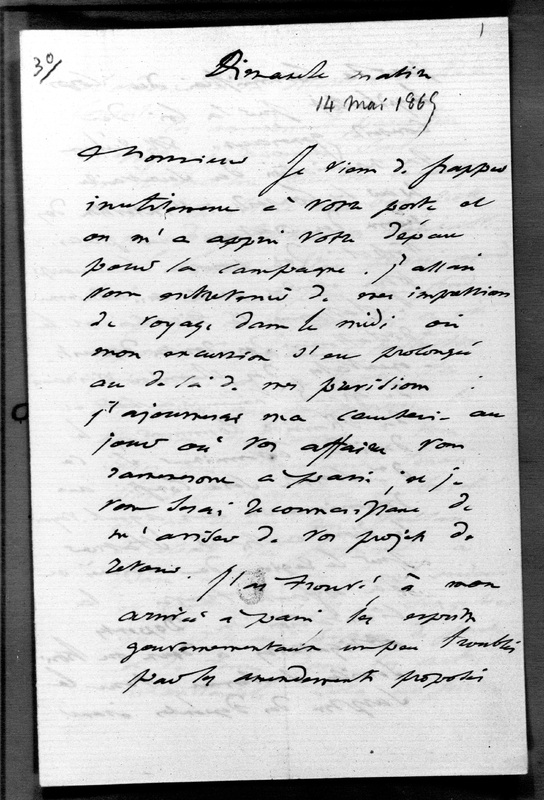 30/
1
Dimanche matin
14 mai 1865
Monsieur Je viens de frapper
inutilement à votre porte et
on m'a appris votre départ
pour la campagne. J'allais
vous entretenir de mes impressions
de voyage dans le midi où
mon excursion s'est prolongée
au delà de mes prévisions :
j'ajournerai ma causerie au
jour où vos affaires vous
ramèneront à paris ; et je
vous serai reconnaissant de
m'aviser de vos projets de
retour.
J'ai trouvé, à mon
arrivée à paris les esprits
gouvernementaux un peu troublés
par les amendements proposés